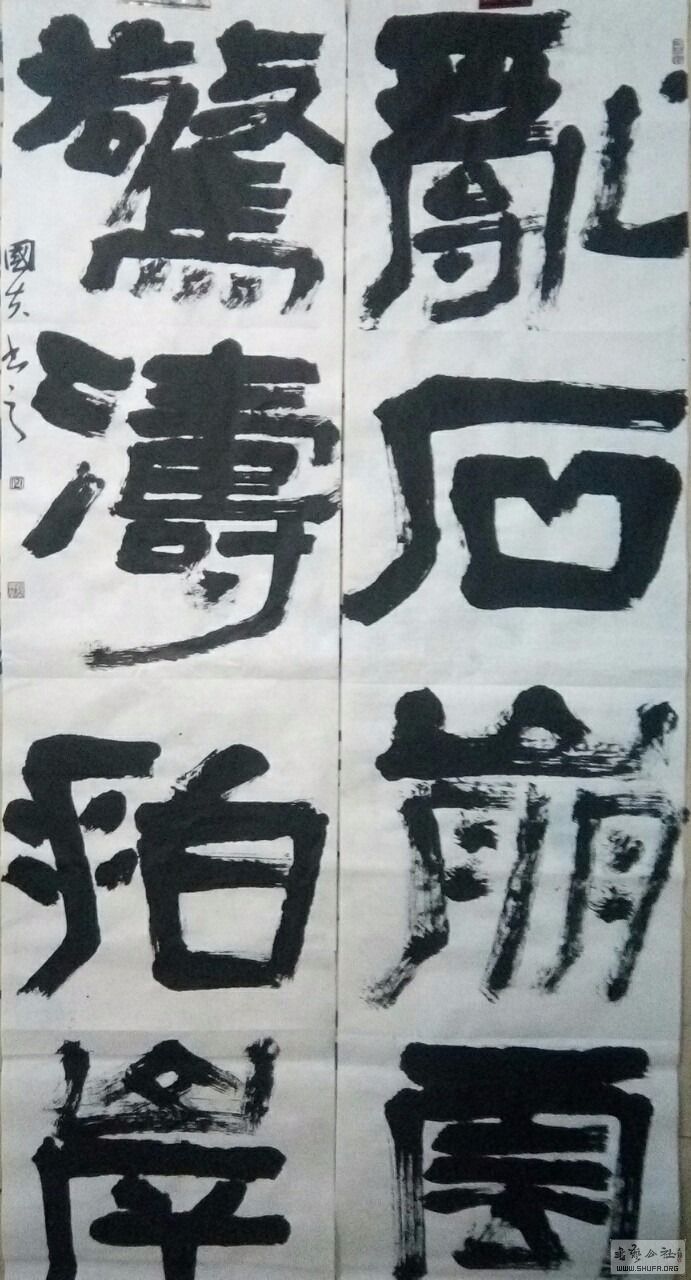 亂石崩雲
驚濤拍岸
國 书之
书艺公社
WWW.SHUFA.ORG